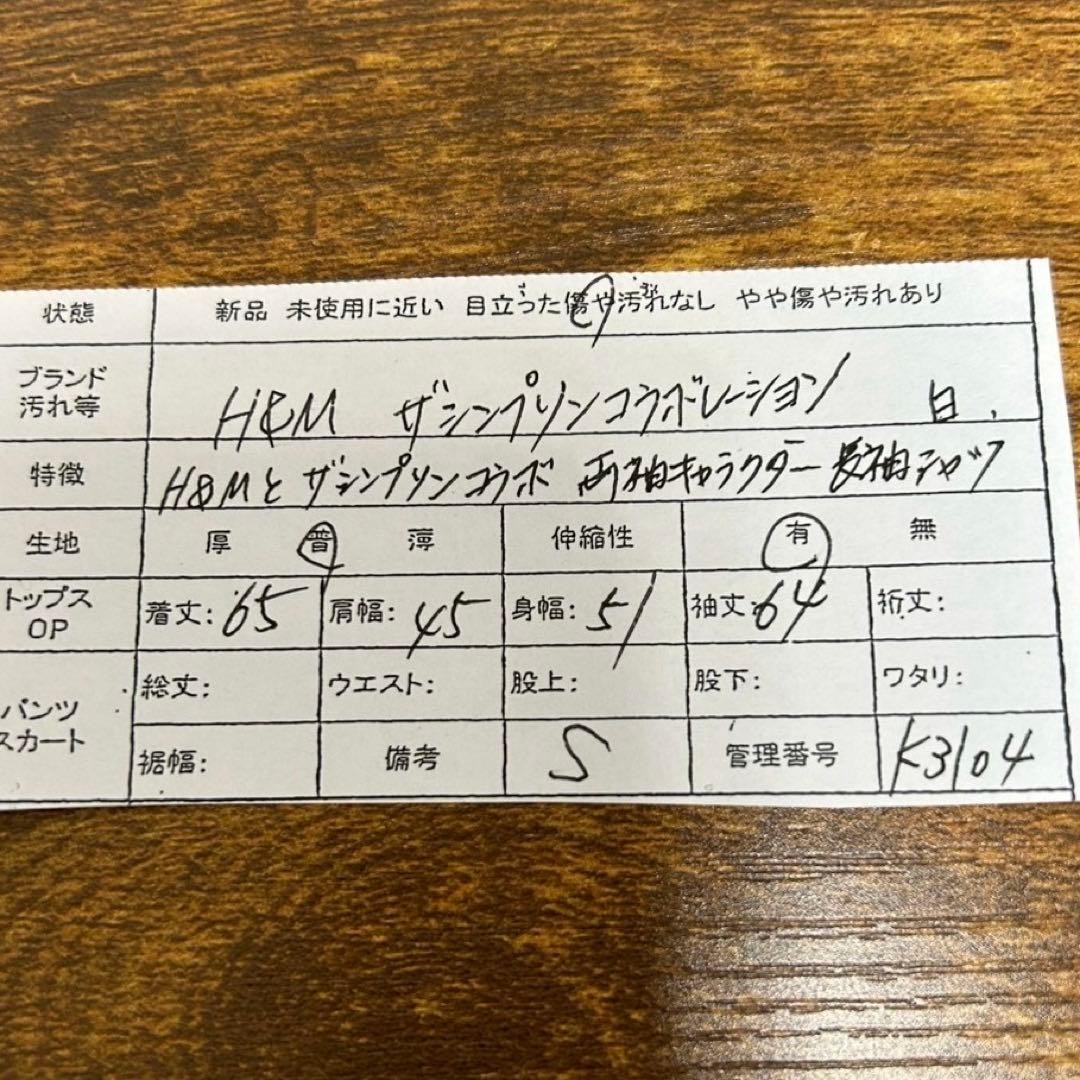 状態 新品 未使用に近い 目立った傷や汚れなし やや傷や汚れあり
ブランド
汚れ等
H&M ザシンプソンコラボレーション 白.
特徴 H&Mとザシンプソンコラボ 両袖キャラクター長袖シャツ
生地 厚 普 薄 伸縮性 有 無
トップス
OP
着丈:65 肩幅:45 身幅:51 袖丈:64 裄丈:
パンツ
スカート
総丈: ウエスト: 股上: 股下: ワタリ:
裾幅: 備考 S 管理番号 K3104